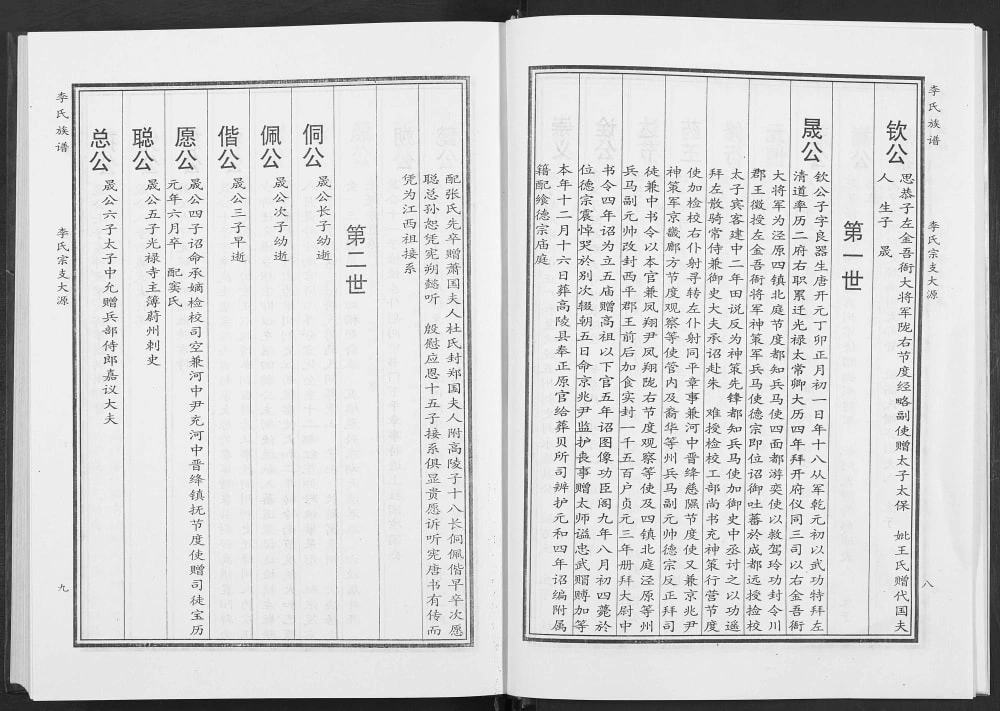 李氏族谱
李氏宗支大源
八
钦公
思恭子左金吾衙大将军陇右节度经略副使赠太子太保 妣王氏赠代国夫
人 生子 晟
第一世
晟公
钦公子字良器生唐开元丁卯正月初一日年十八从军乾元初以武功特拜左
清道率历二府右职累迁光禄太常卿大历四年拜开府仪同三司以右金吾衙
大将军为泾原四镇北庭节度都知兵马使四面都游奕使以教驾玲功封合川
郡王徵授左金吾衙将军神策军兵马使德宗即位诏御吐蕃於成都远授检校
太子宾客建中二年田说反为神策先锋都知兵马使加御史中丞讨之以功遥
拜左散骑常侍兼御史大夫承诏赴朱 难授检校工部尚书充神策行营节度
使加检校右仆射寻转左仆射同平章事兼河中晋绛慈隰节度使又兼京兆尹
神策军京畿鄜方节度观察等使管内及裔华等州兵马副元帅德宗反正拜司
徒兼中书令以本官兼凤翔尹凤翔陇右节度观察等使及四镇北庭泾原等州
兵马副元帅改封西平郡王前后加食实封一千五百户贞元三年册拜大尉中
书令四年诏为立五庙赠高祖以下官五年诏图像功臣阁九年八月初四薨於
位德宗震悼哭於别次辍朝五日命京兆尹监护丧事赠太师谥忠武赗赙加等
本年十二月十六日葬高陵县奉正原官给葬贝所司辨护元和四年诏编附属
籍配飨德宗庙庭
配张氏先卒赠萧国夫人杜氏封郑国夫人附高陵子十八长侗佩偕早卒次愿
聪总孙恕凭宪朔懿听 殷慰应恩十五子接系俱显贵愿诉听宪唐书有传而
凭为江西祖接系
第二世
侗公
晟公长子幼逝
佩公
晟公次子幼逝
偕公
晟公三子早逝
愿公
晟公四子诏命承嫡检校司空兼河中尹充河中晋绛镇抚节度使赠司徒宝历
元年六月卒 配窦氏
聪公
晟公五子光禄寺主簿蔚州刺史
总公
晟公六子太子中允赠兵部侍郎嘉议大夫
李氏族谱
李氏宗支大源
九